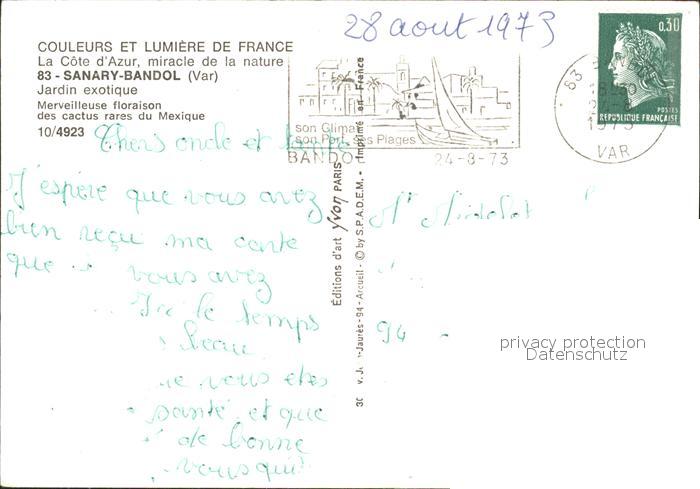 28 aout 1973
COULEURS ET LUMIÈRE DE FRANCE
La Côte d'Azur, miracle de la nature
83 - SANARY-BANDOL (Var)
Jardin exotique
Merveilleuse floraison
des cactus rares du Mexique
10/4923
0,30
POSTES
REPUBLIQUE FRANÇAISE
83
1973
VAR
son Climat
son Port ses Plages
BANDOL
24-8-73
Chers oncle et tante
J'espère que vous avez
bien reçu ma carte
que vous avez
Ici le temps
beau
vous etes
santé et que
de bonne
vous qui
Imprimé en France
Éditions d'art Yvon PARIS
Jaurès - 94 - Arcueil - © by S.P.A.D.E.M.
94
privacy protection
Datenschutz